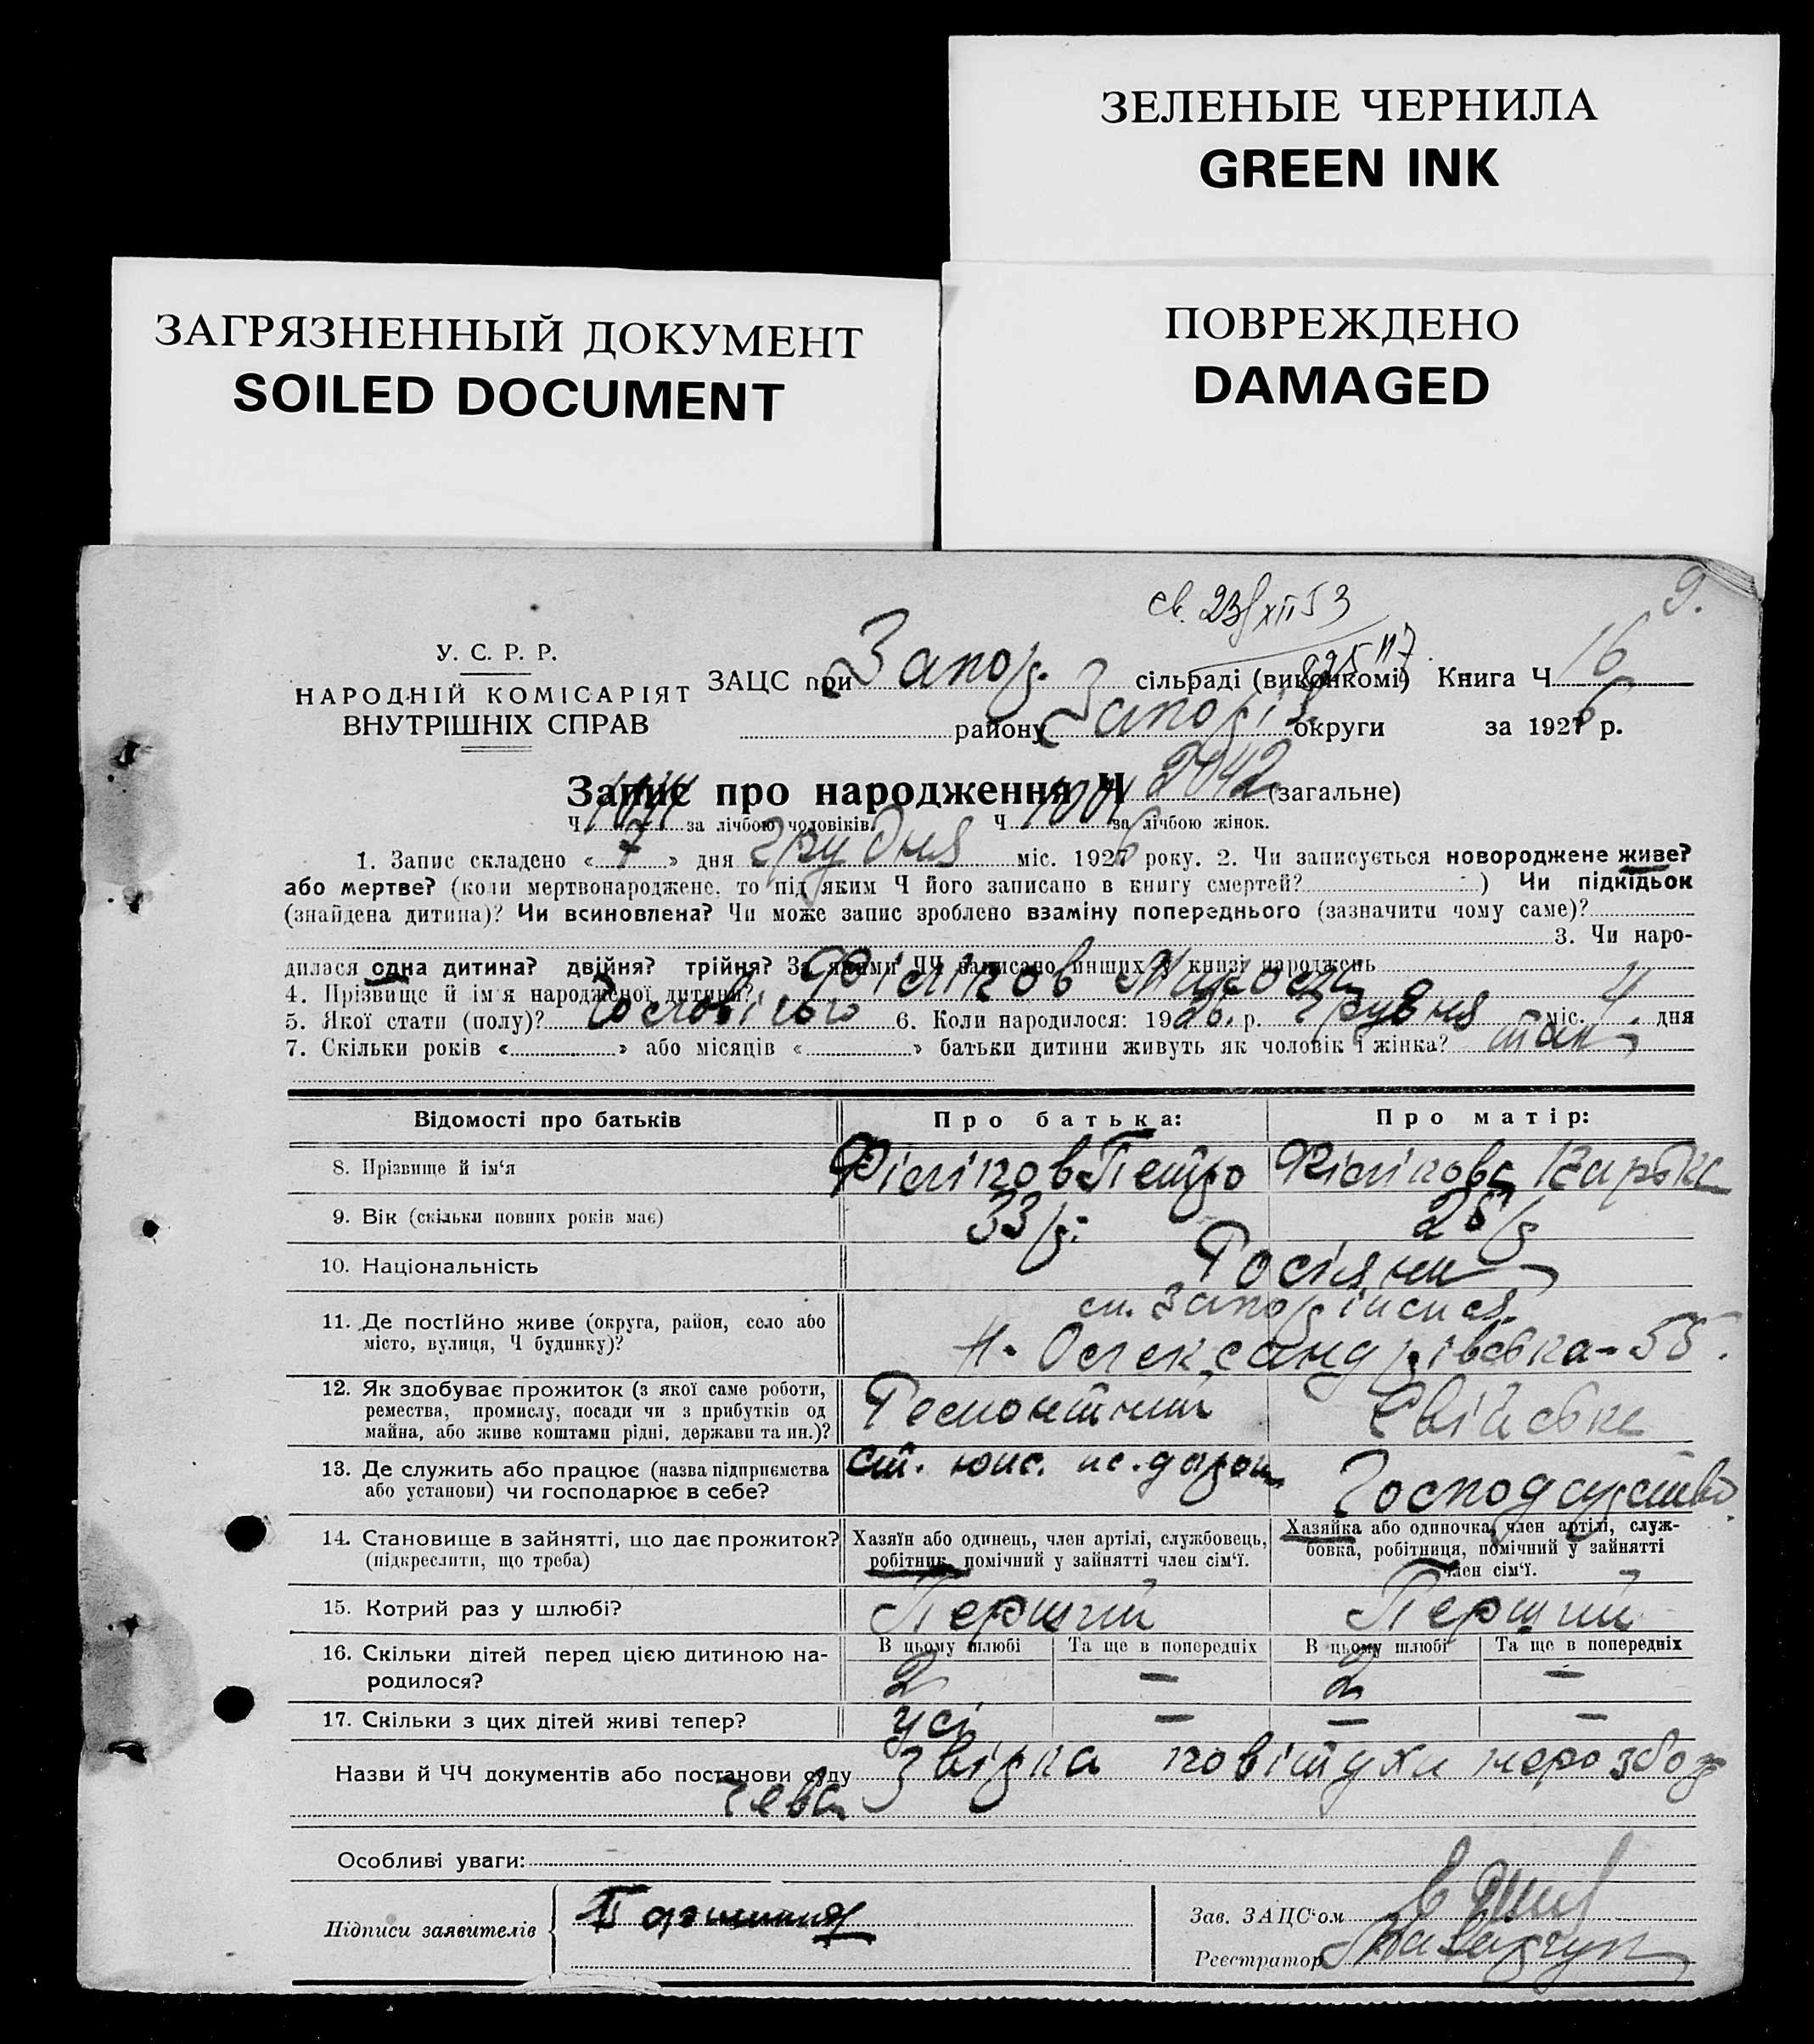 ЗЕЛЕНЫЕ ЧЕРНИЛА
GREEN INK
ЗАГРЯЗНЕННЫЙ ДОКУМЕНТ
SOILED DOCUMENT
ПОВРЕЖДЕНО
DAMAGED
9.
св. 23/XII 53
У. С. Р. Р.
НАРОДНІЙ КОМІСАРІЯТ
ВНУТРІШНІХ СПРАВ
ЗАЦС при Запор. сільраді (виконкомі) Книга Ч 16
району Запоріз. округи за 1926 р.
Запис про народження Ч 2042 (загальне)
Ч за лічбою чоловіків. Ч за лічбою жінок.
1. Запис складено « 7 » дня Грудня міс. 1926 року. 2. Чи записується новороджене живе?
або мертве? (коли мертвонароджене, то під яким Ч його записано в книгу смертей? ) Чи підкідьок
(знайдена дитина)? Чи всиновлена? Чи може запис зроблено взаміну попереднього (зазначити чому саме)?
3. Чи наро-
дилася одна дитина? двійня? трійня? За якими ЧЧ записано инших у книзі народжень
4. Прізвище й ім'я народженої дитини? Філіпов
5. Якої стати (полу)? Чоловічого 6. Коли народилося: 1926. р. Грудня міс. 4 дня
7. Скільки років « » або місяців « » батьки дитини живуть як чоловік і жінка? так
Відомості про батьків Про батька: Про матір:
8. Прізвище й ім'я Філіпов Петро Філіпова
9. Вік (скільки повних років має) 33 р. 25 р
10. Національність Росіяни
11. Де постійно живе (округа, район, село або
місто, вулиця, Ч будинку)?
ст. Запоріжжя
Н. Олександрівська - 55.
12. Як здобуває прожиток (з якої саме роботи,
ремества, промислу, посади чи з прибутків од
майна, або живе коштами рідні, держави та ин.)?
Ремонтний
13. Де служить або працює (назва підприємства
або установи) чи господарює в себе?
14. Становище в зайнятті, що дає прожиток?
(підкреслити, що треба)
Хазяїн або одинець, член артілі, службовець,
робітник, помічний у зайнятті член сім'ї.
Хазяйка або одиночка, член артілі, служ-
бовка, робітниця, помічний у зайнятті
член сім'ї.
15. Котрий раз у шлюбі? Перший Перший
16. Скільки дітей перед цією дитиною на-
родилося?
В цьому шлюбі Та ще в попередніх В цьому шлюбі Та ще в попередніх
2 — 2 —
17. Скільки з цих дітей живі тепер? усі — — —
Назви й ЧЧ документів або постанови суду Звірка повітухи
Особливі уваги:
Підписи заявителів
Зав. ЗАЦС'ом
Реєстратор